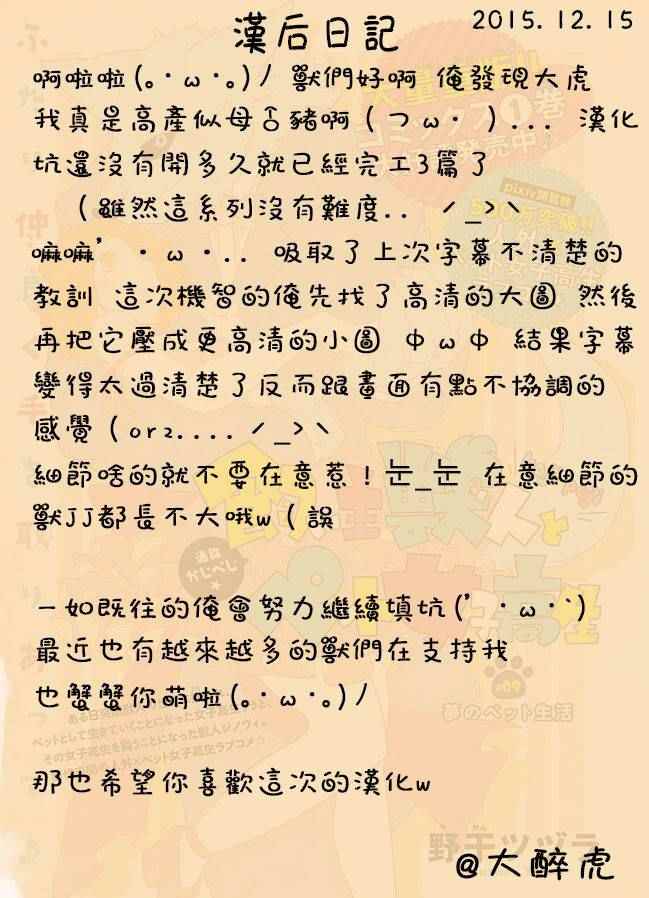 漢后日記
2015.12.15
啊啦啦(｡･ω･｡)ﾉ 獸們好啊 俺發現大虎
我真是高產似母豬啊（つω･）... 漢化
坑還沒有開多久就已經完工3篇了
（雖然這系列沒有難度.. ˊ_>ˋ
嘛嘛'･ω･.. 吸取了上次字幕不清楚的
教訓 這次機智的俺先找了高清的大圖 然後
再把它壓成更高清的小圖 ФωФ 結果字幕
變得太過清楚了反而跟畫面有點不協調的
感覺（orz....ˊ_>ˋ
細節啥的就不要在意惹！눈_눈 在意細節的
獸JJ都長不大哦w（誤
一如既往的俺會努力繼續填坑(′･ω･`)
最近也有越來越多的獸們在支持我
也蟹蟹你萌啦(｡･ω･｡)ﾉ
夢のペット生活
那也希望你喜歡這次的漢化w
野干ツヅラ
@大醉虎